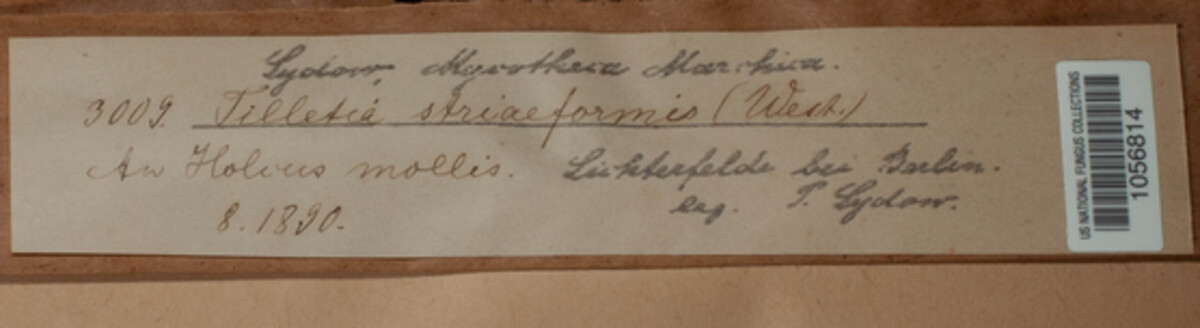 Sydow, Mycotheca Marchica.
3009. Tilletia striaeformis (West.)
An Holcus mollis. Lichterfelde bei Berlin.
8. 1890. leg. P. Sydow.
US NATIONAL FUNGUS COLLECTIONS
1056814